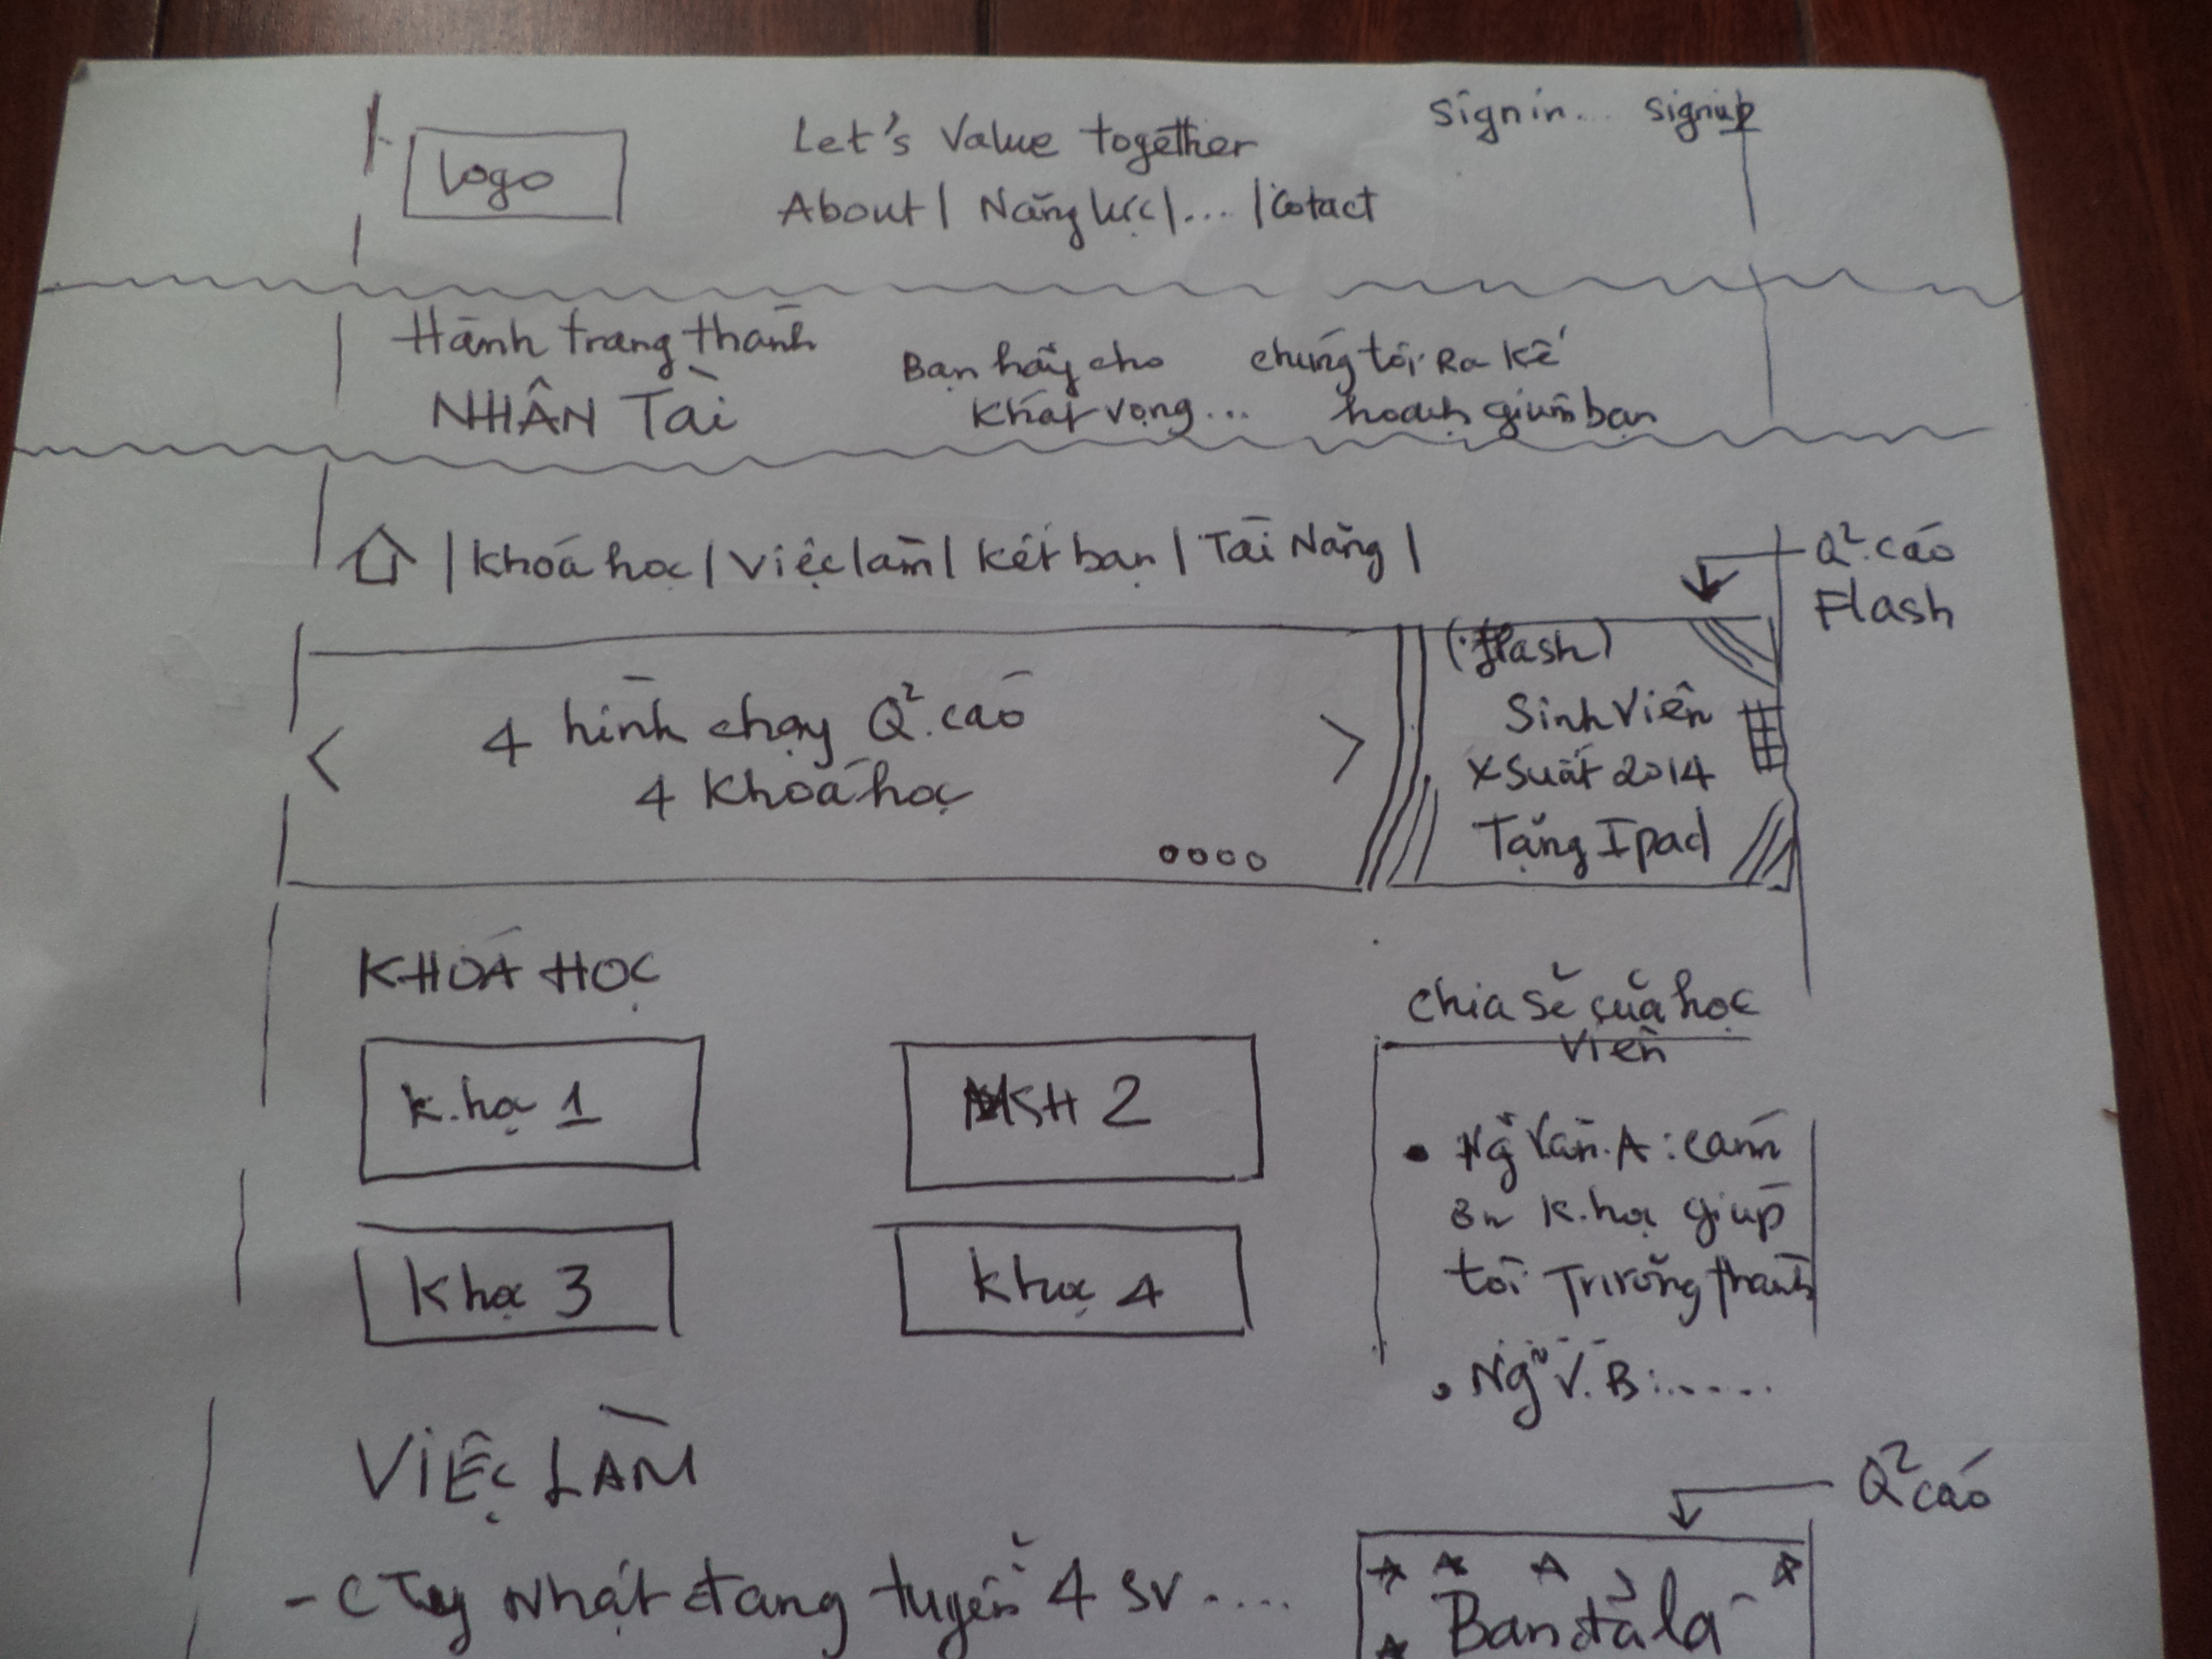 Let's Value together
Sign in... Signup
Logo
About | Năng lực | ... | Cotact
Hành trang thành
NHÂN Tài
Bạn hãy cho
khát vọng...
chúng tôi Ra kế
hoạch giùm bạn
| Khoá học | Việc làm | Kết bạn | Tài Năng |
Q².cáo
Flash
4 hình chạy Q².cáo
4 khoá học
(flash)
Sinh Viên
XSuất 2014
Tặng Ipad
KHOÁ HỌC
K.học 1
KSH 2
Khọc 3
Khọc 4
Chia sẻ của học
Viên
• Ngỹ Văn.A: cám
ơn K.học giúp
tôi Trưởng thành
• Ngỹ V.B:.....
VIỆC LÀM
- CTy Nhật đang tuyển 4 SV....
Q² cáo
Bạn đã là